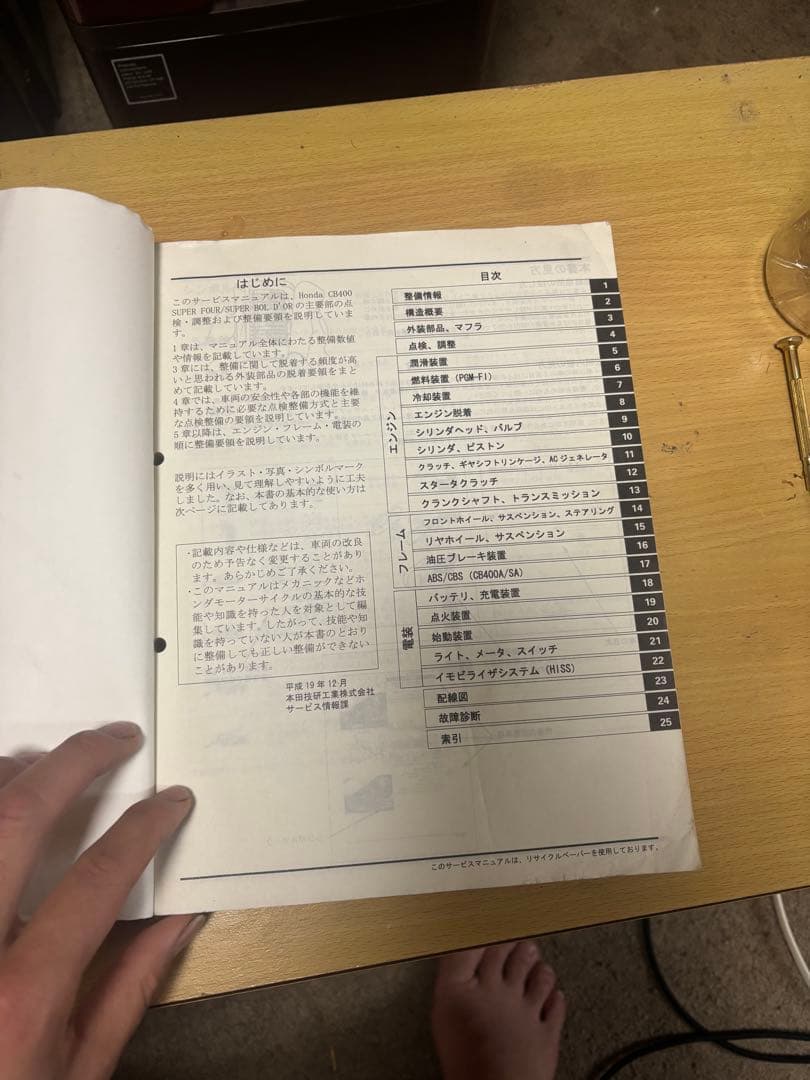 はじめに
このサービスマニュアルは、Honda CB400
SUPER FOUR/SUPER BOL D'ORの主要部の点
検・調整および整備要領を説明していま
す。
1章は、マニュアル全体にわたる整備数値
や情報を記載しています。
3章には、整備に関して脱着する頻度が高
いと思われる外装部品の脱着要領をまと
めて記載しています。
4章では、車両の安全性や各部の機能を維
持するために必要な点検整備方式と主要
な点検整備の要領を説明しています。
5章以降は、エンジン・フレーム・電装の
順に整備要領を説明しています。
説明にはイラスト・写真・シンボルマーク
を多く用い、見て理解しやすいように工夫
しました。なお、本書の基本的な使い方は
次ページに記載してあります。
・記載内容や仕様などは、車両の改良
のため予告なく変更することがあり
ます。あらかじめご了承ください。
・このマニュアルはメカニックなどホ
ンダモーターサイクルの基本的な技
能や知識を持った人を対象として編
集しています。したがって、技能や知
識を持っていない人が本書のとおり
に整備しても正しい整備ができない
ことがあります。
平成19年12月
本田技研工業株式会社
サービス情報課
目次
整備情報 1
構造概要 2
外装部品、マフラ 3
点検、調整 4
エンジン
潤滑装置 5
燃料装置(PGM-FI) 6
冷却装置 7
エンジン脱着 8
シリンダヘッド、バルブ 9
シリンダ、ピストン 10
クラッチ、ギヤシフトリンケージ、ACジェネレータ 11
スタータクラッチ 12
クランクシャフト、トランスミッション 13
フレーム
フロントホイール、サスペンション、ステアリング 14
リヤホイール、サスペンション 15
油圧ブレーキ装置 16
ABS/CBS(CB400A/SA) 17
電装
バッテリ、充電装置 18
点火装置 19
始動装置 20
ライト、メータ、スイッチ 21
イモビライザシステム(HISS) 22
配線図 23
故障診断 24
索引 25
このサービスマニュアルは、リサイクルペーパーを使用しております。